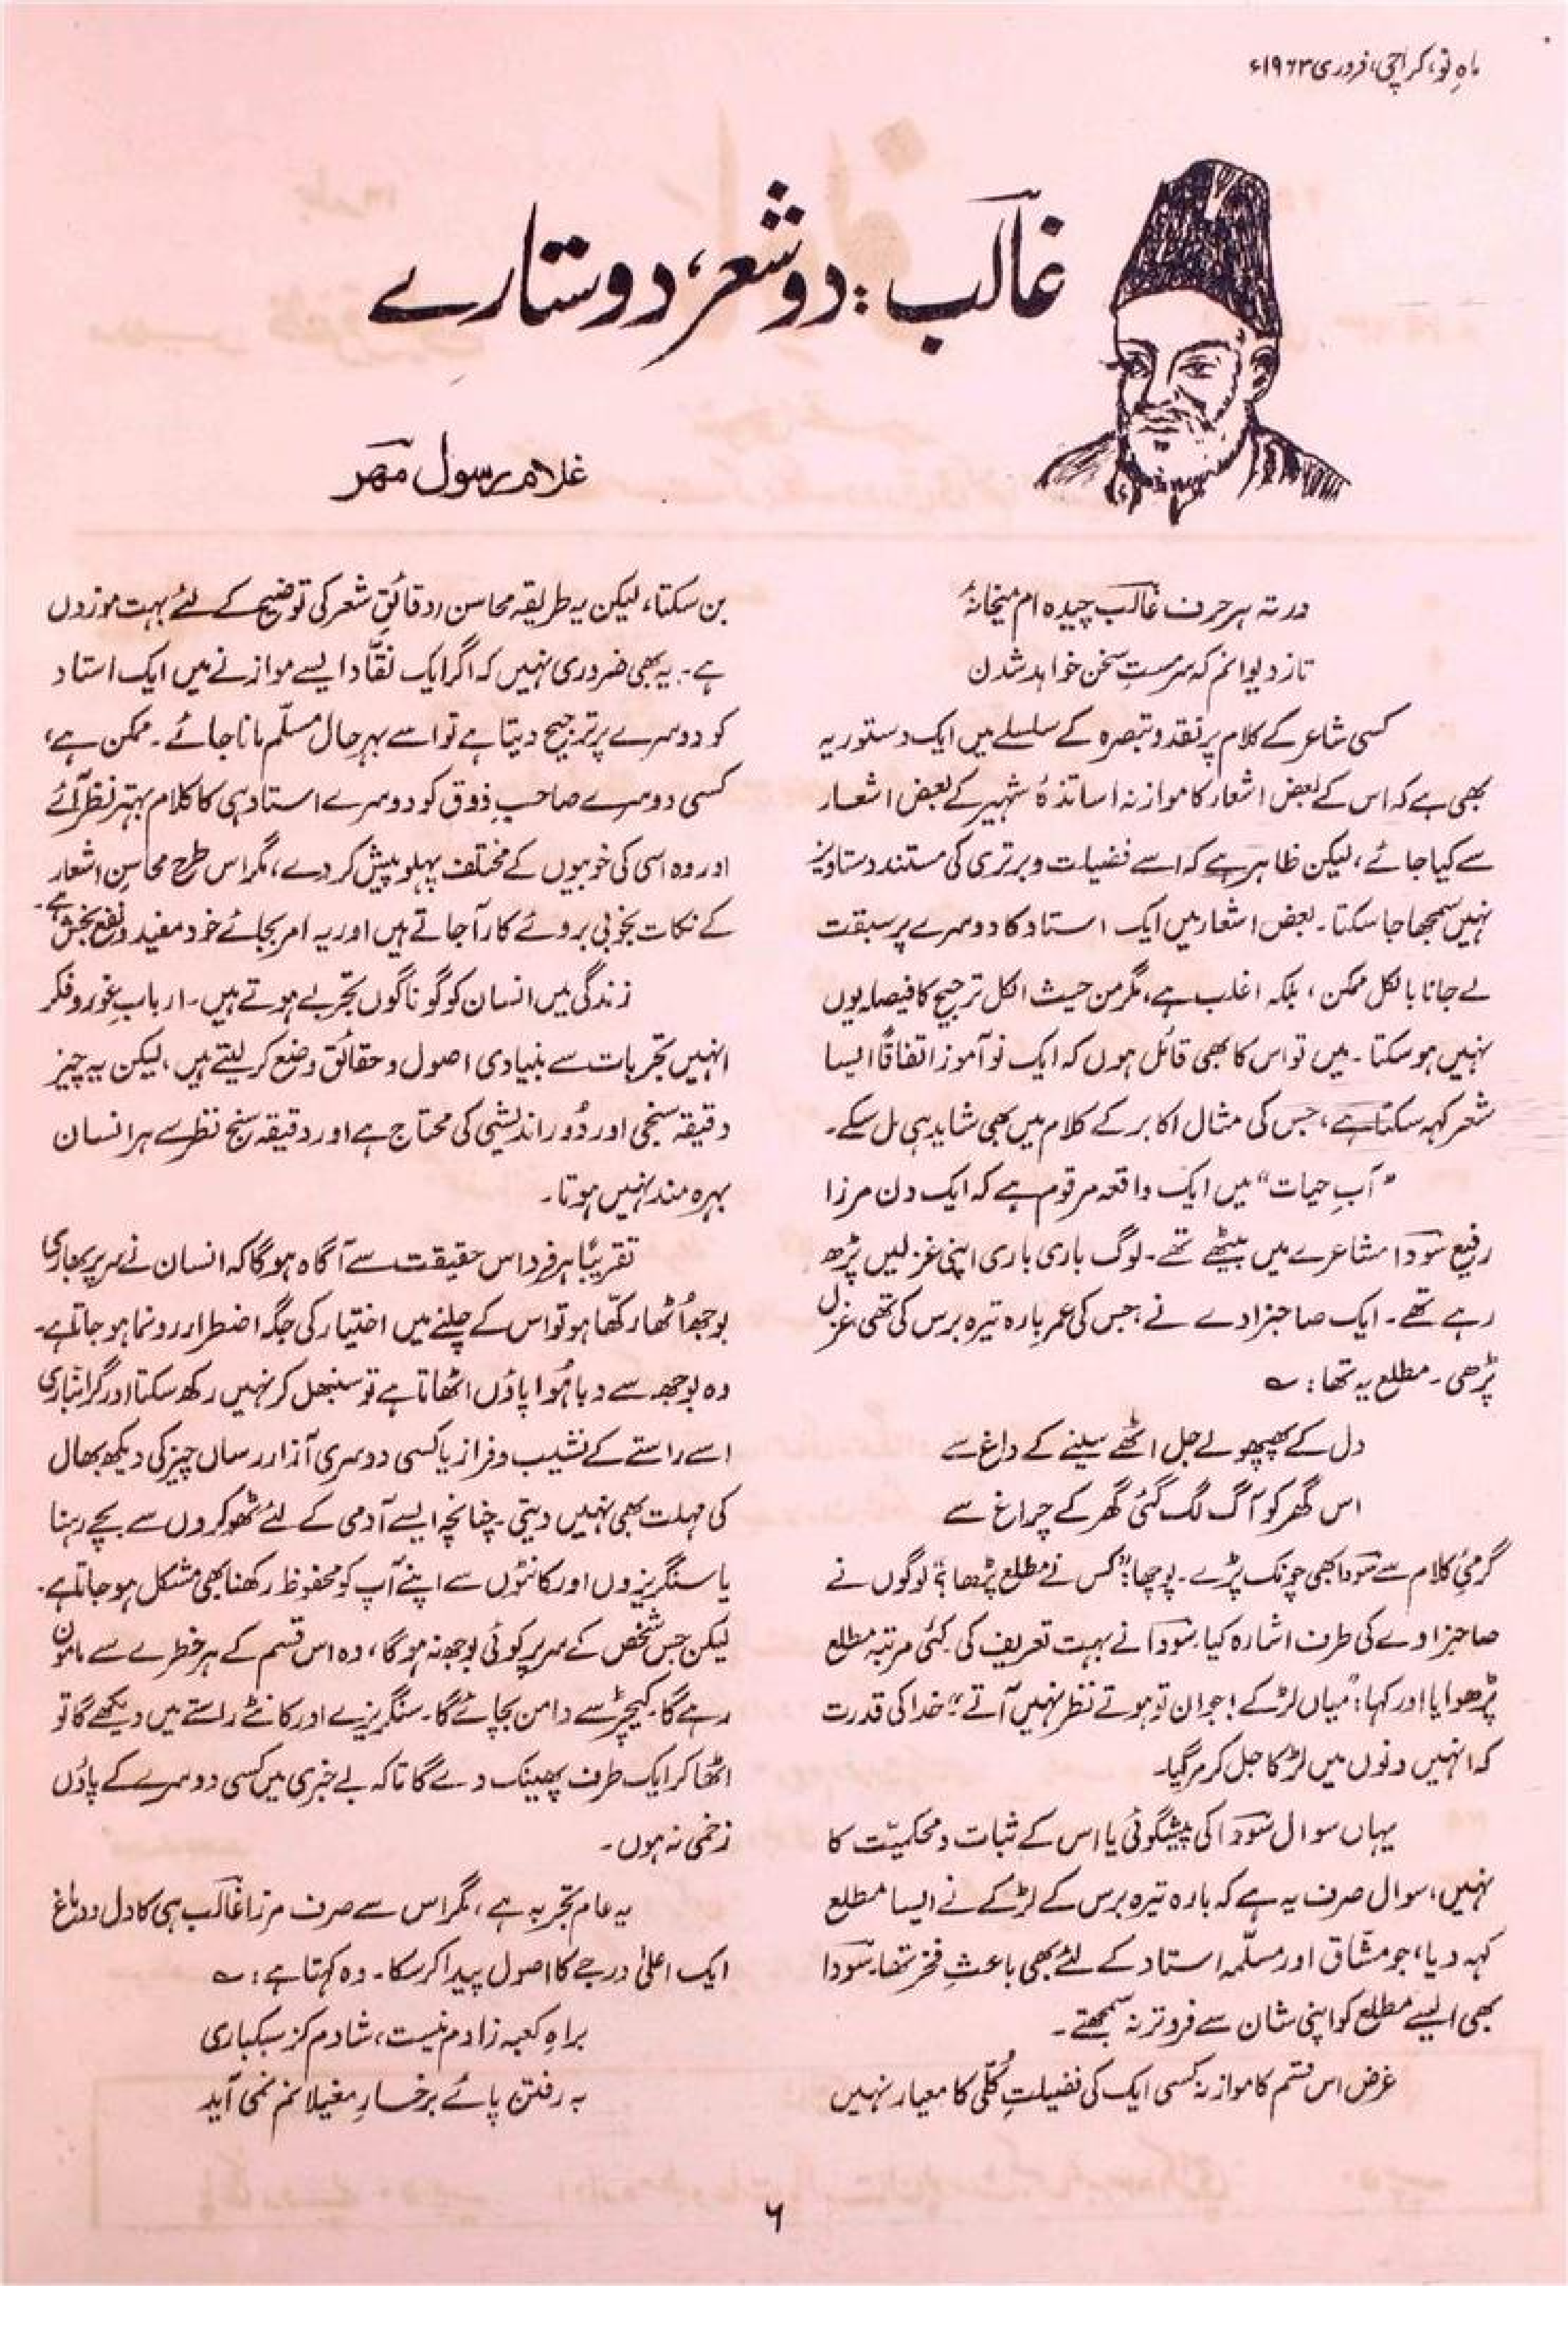 ماہِ نو، کراچی، فروری ۱۹۶۳ء
غالب : دو شعر، دو ستارے
غلام رسول مہر
در تہ ہر حرف غالب چیدہ ام میخانۂ
تا ز دیوانم کہ سرمستِ سخن خواہد شدن
کسی شاعر کے کلام پر نقد و تبصرہ کے سلسلے میں ایک دستور یہ
بھی ہے کہ اس کے بعض اشعار کا موازنہ اساتذۂ شہیر کے بعض اشعار
سے کیا جائے، لیکن ظاہر ہے کہ اسے فضیلت و برتری کی مستند دستاویز
نہیں سمجھا جا سکتا۔ بعض اشعار میں ایک استاد کا دوسرے پر سبقت
لے جانا بالکل ممکن، بلکہ اغلب ہے، مگر من حیث الکل ترجیح کا فیصلہ یوں
نہیں ہو سکتا۔ میں تو اس کا بھی قائل ہوں کہ ایک نو آموز اتفاقاً ایسا
شعر کہہ سکتا ہے، جس کی مثال اکابر کے کلام میں بھی شاید ہی مل سکے۔
"آبِ حیات" میں ایک واقعہ مرقوم ہے کہ ایک دن مرزا
رفیع سودا مشاعرے میں بیٹھے تھے۔ لوگ باری باری اپنی غزلیں پڑھ
رہے تھے۔ ایک صاحبزادے نے، جس کی عمر بارہ تیرہ برس کی تھی غزل
پڑھی۔ مطلع یہ تھا: ؎
دل کے پھپھولے جل اٹھے سینے کے داغ سے
اس گھر کو آگ لگ گئی گھر کے چراغ سے
گرمئ کلام سے سودا بھی چونک پڑے۔ پوچھا: "کس نے مطلع پڑھا؟" لوگوں نے
صاحبزادے کی طرف اشارہ کیا۔ سودا نے بہت تعریف کی کئی مرتبہ مطلع
پڑھوایا اور کہا: "میاں لڑکے! جوان تو ہوتے نظر نہیں آتے" خدا کی قدرت
کہ انہیں دنوں میں لڑکا جل کر مر گیا۔
یہاں سوال سودا کی پیشگوئی یا اس کے ثبات و محکمیّت کا
نہیں، سوال صرف یہ ہے کہ بارہ تیرہ برس کے لڑکے نے ایسا مطلع
کہہ دیا، جو مشّاق اور مسلّمہ استاد کے لئے بھی باعثِ فخر تھا۔ سودا
بھی ایسے مطلع کو اپنی شان سے فروتر نہ سمجھتے۔
غرض اس قسم کا موازنہ کسی ایک کی فضیلتِ کُلّی کا معیار نہیں
بن سکتا، لیکن یہ طریقہ محاسن او دقائقِ شعر کی توضیح کے لئے بہت موزوں
ہے۔ یہ بھی ضروری نہیں کہ اگر ایک نقّاد ایسے موازنے میں ایک استاد
کو دوسرے پر ترجیح دیتا ہے تو اسے بہرحال مسلّم مانا جائے۔ ممکن ہے،
کسی دوسرے صاحبِ ذوق کو دوسرے استاد ہی کا کلام بہتر نظر آئے
اور وہ اسی کی خوبیوں کے مختلف پہلو پیش کر دے، مگر اس طرح محاسنِ اشعار
کے نکات بخوبی بروئے کار آ جاتے ہیں اور یہ امر بجائے خود مفید و نفع بخش ہے۔
زندگی میں انسان کو گوناگوں تجربے ہوتے ہیں۔ اربابِ غور و فکر
انہیں تجربات سے بنیادی اصول و حقائق وضع کر لیتے ہیں، لیکن یہ چیز
دقیقہ سنجی اور دُور اندیشی کی محتاج ہے اور دقیقہ سنج نظر سے ہر انسان
بہرہ مند نہیں ہوتا۔
تقریباً ہر فرد اس حقیقت سے آگاہ ہوگا کہ انسان نے سر پر بھاری
بوجھ اُٹھا رکھّا ہو تو اس کے چلنے میں اختیار کی جگہ اضطرار رونما ہو جاتا ہے۔
وہ بوجھ سے دبا ہُوا پاؤں اٹھاتا ہے تو سنبھل کر نہیں رکھ سکتا اور گرانباری
اسے راستے کے نشیب و فراز یا کسی دوسری آزار رساں چیز کی دیکھ بھال
کی مہلت بھی نہیں دیتی۔ چنانچہ ایسے آدمی کے لئے ٹھوکروں سے بچے رہنا
یا سنگریزوں اور کانٹوں سے اپنے آپ کو محفوظ رکھنا بھی مشکل ہو جاتا ہے۔
لیکن جس شخص کے سر پر کوئی بوجھ نہ ہوگا، وہ اس قسم کے ہر خطرے سے مامون
رہے گا۔ کیچڑ سے دامن بچائے گا۔ سنگریزے اور کانٹے راستے میں دیکھے گا تو
اٹھا کر ایک طرف پھینک دے گا تاکہ بے خبری میں کسی دوسرے کے پاؤں
زخمی نہ ہوں۔
یہ عام تجربہ ہے، مگر اس سے صرف مرزا غالب ہی کا دل و دماغ
ایک اعلیٰ درجے کا اصول پیدا کر سکا۔ وہ کہتا ہے: ؎
براہِ کعبہ زادم نیست، شادم کز سبکباری
بہ رفتن پائے بر خارِ مغیلانم نمی آید
۶